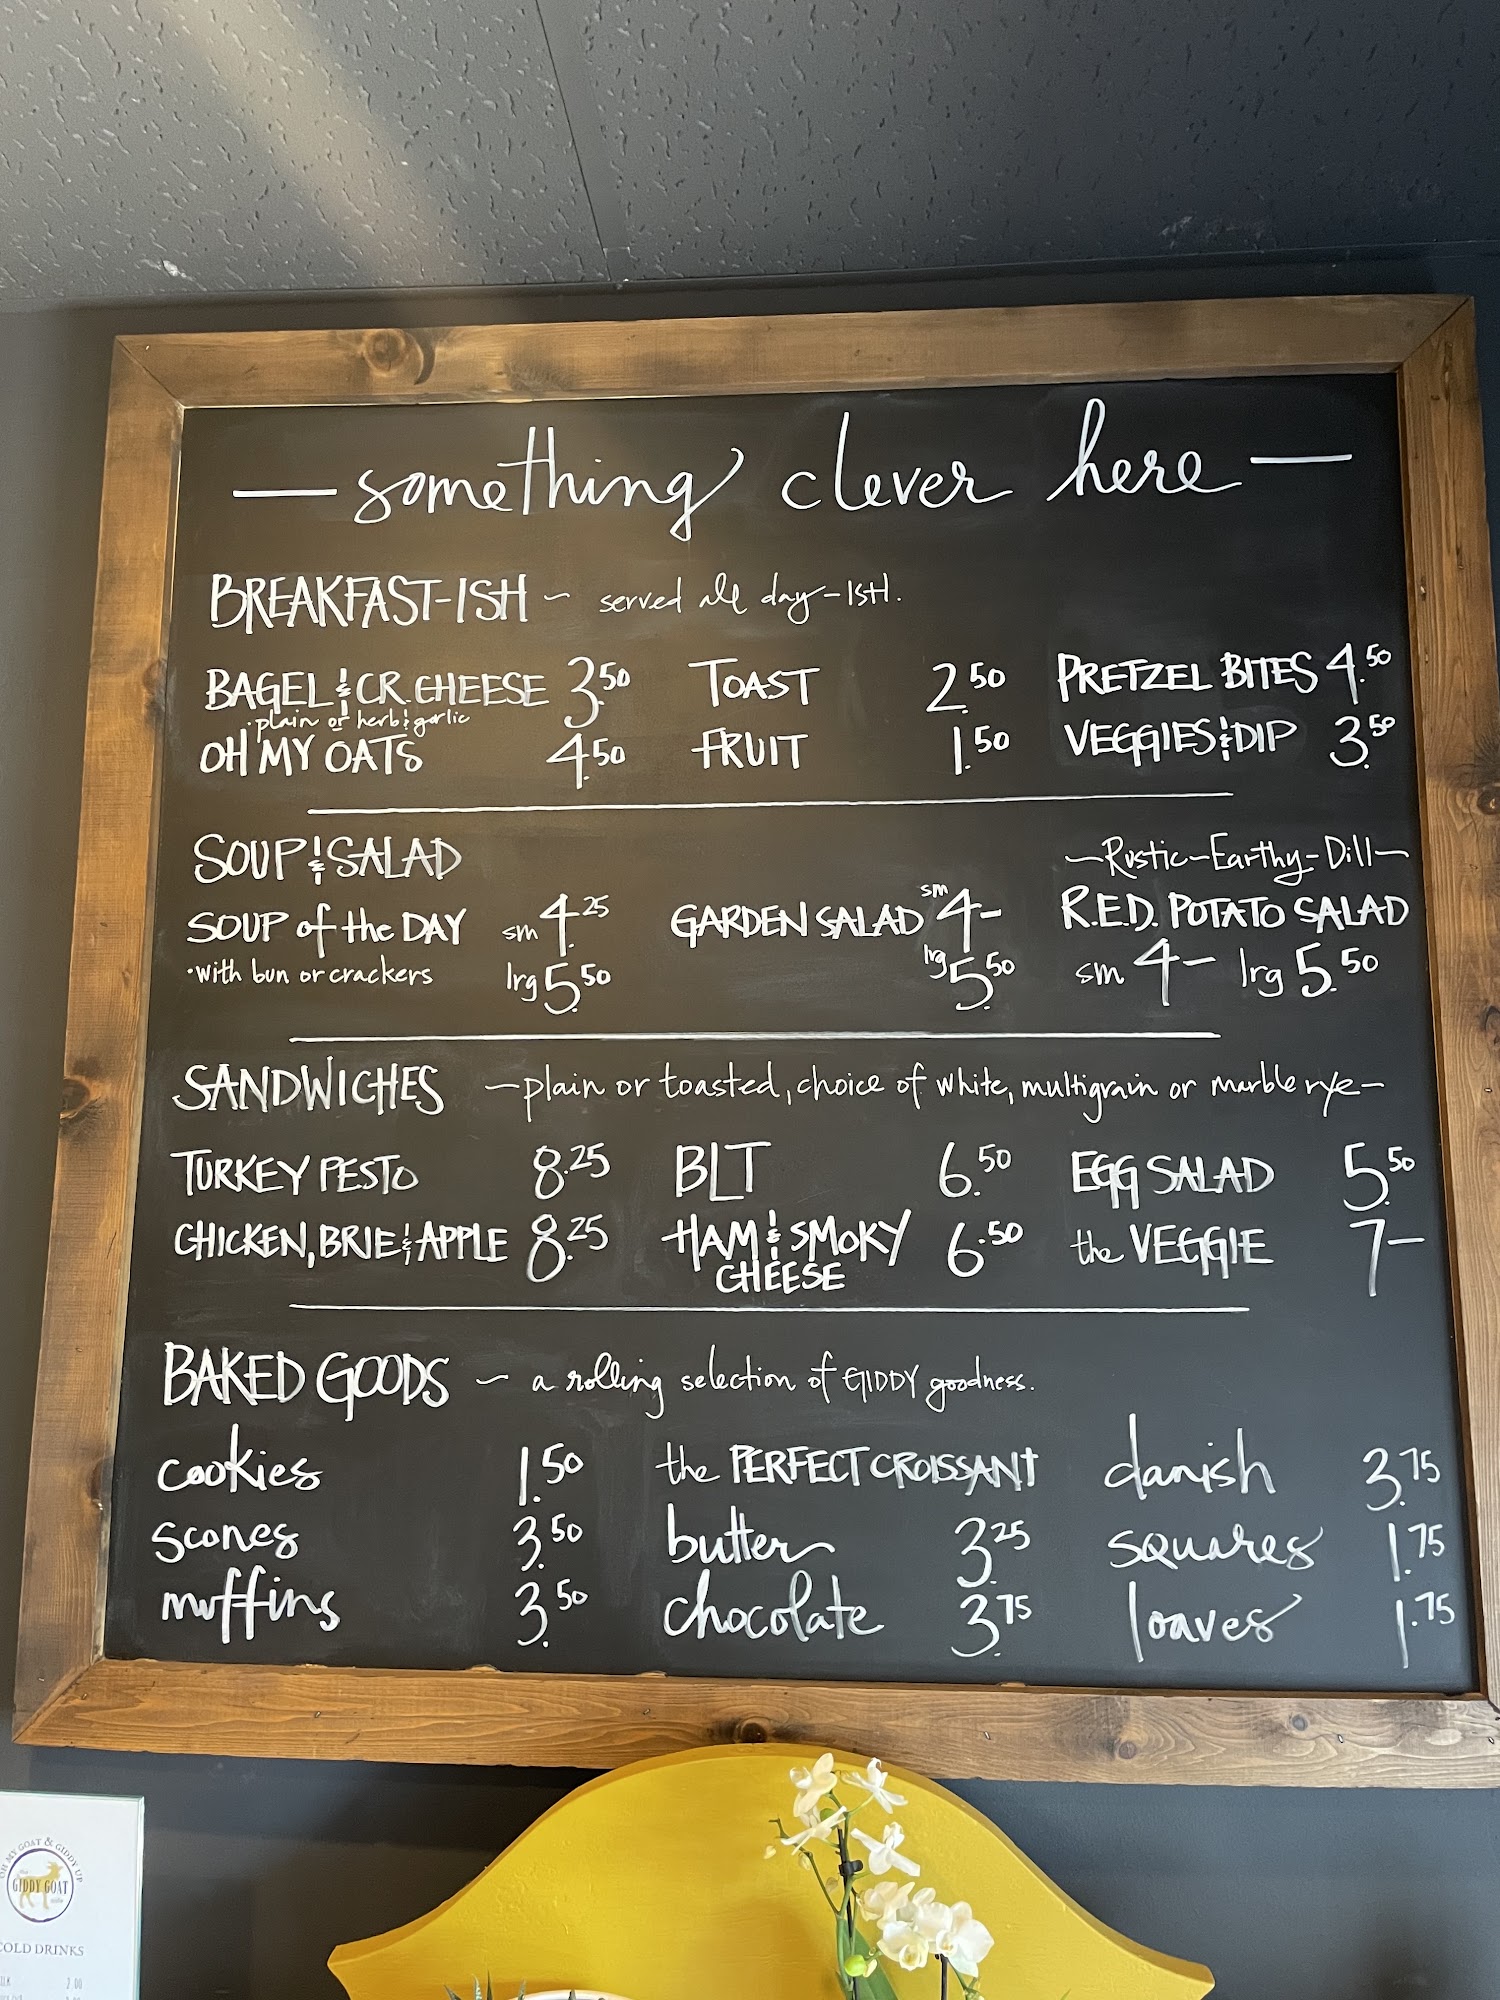 — something clever here —
BREAKFAST-ISH ~ served all day-ISH.
BAGEL & CR. CHEESE 3.50 TOAST 2.50 PRETZEL BITES 4.50
· plain or herb & garlic
OH MY OATS 4.50 FRUIT 1.50 VEGGIES & DIP 3.50
SOUP & SALAD ~Rustic-Earthy-Dill~
SOUP of the DAY sm 4.25 GARDEN SALAD sm 4- R.E.D. POTATO SALAD
·with bun or crackers lrg 5.50 lrg 5.50 sm 4- lrg 5.50
SANDWICHES ~plain or toasted, choice of white, multigrain or marble rye~
TURKEY PESTO 8.25 BLT 6.50 EGG SALAD 5.50
CHICKEN, BRIE & APPLE 8.25 HAM & SMOKY CHEESE 6.50 the VEGGIE 7-
BAKED GOODS ~ a rolling selection of GIDDY goodness.
cookies 1.50 the PERFECT CROISSANT danish 3.75
scones 3.50 butter 3.25 squares 1.75
muffins 3.50 chocolate 3.75 loaves 1.75
OH MY GOAT & GIDDY UP
the
GIDDY GOAT
COLD DRINKS